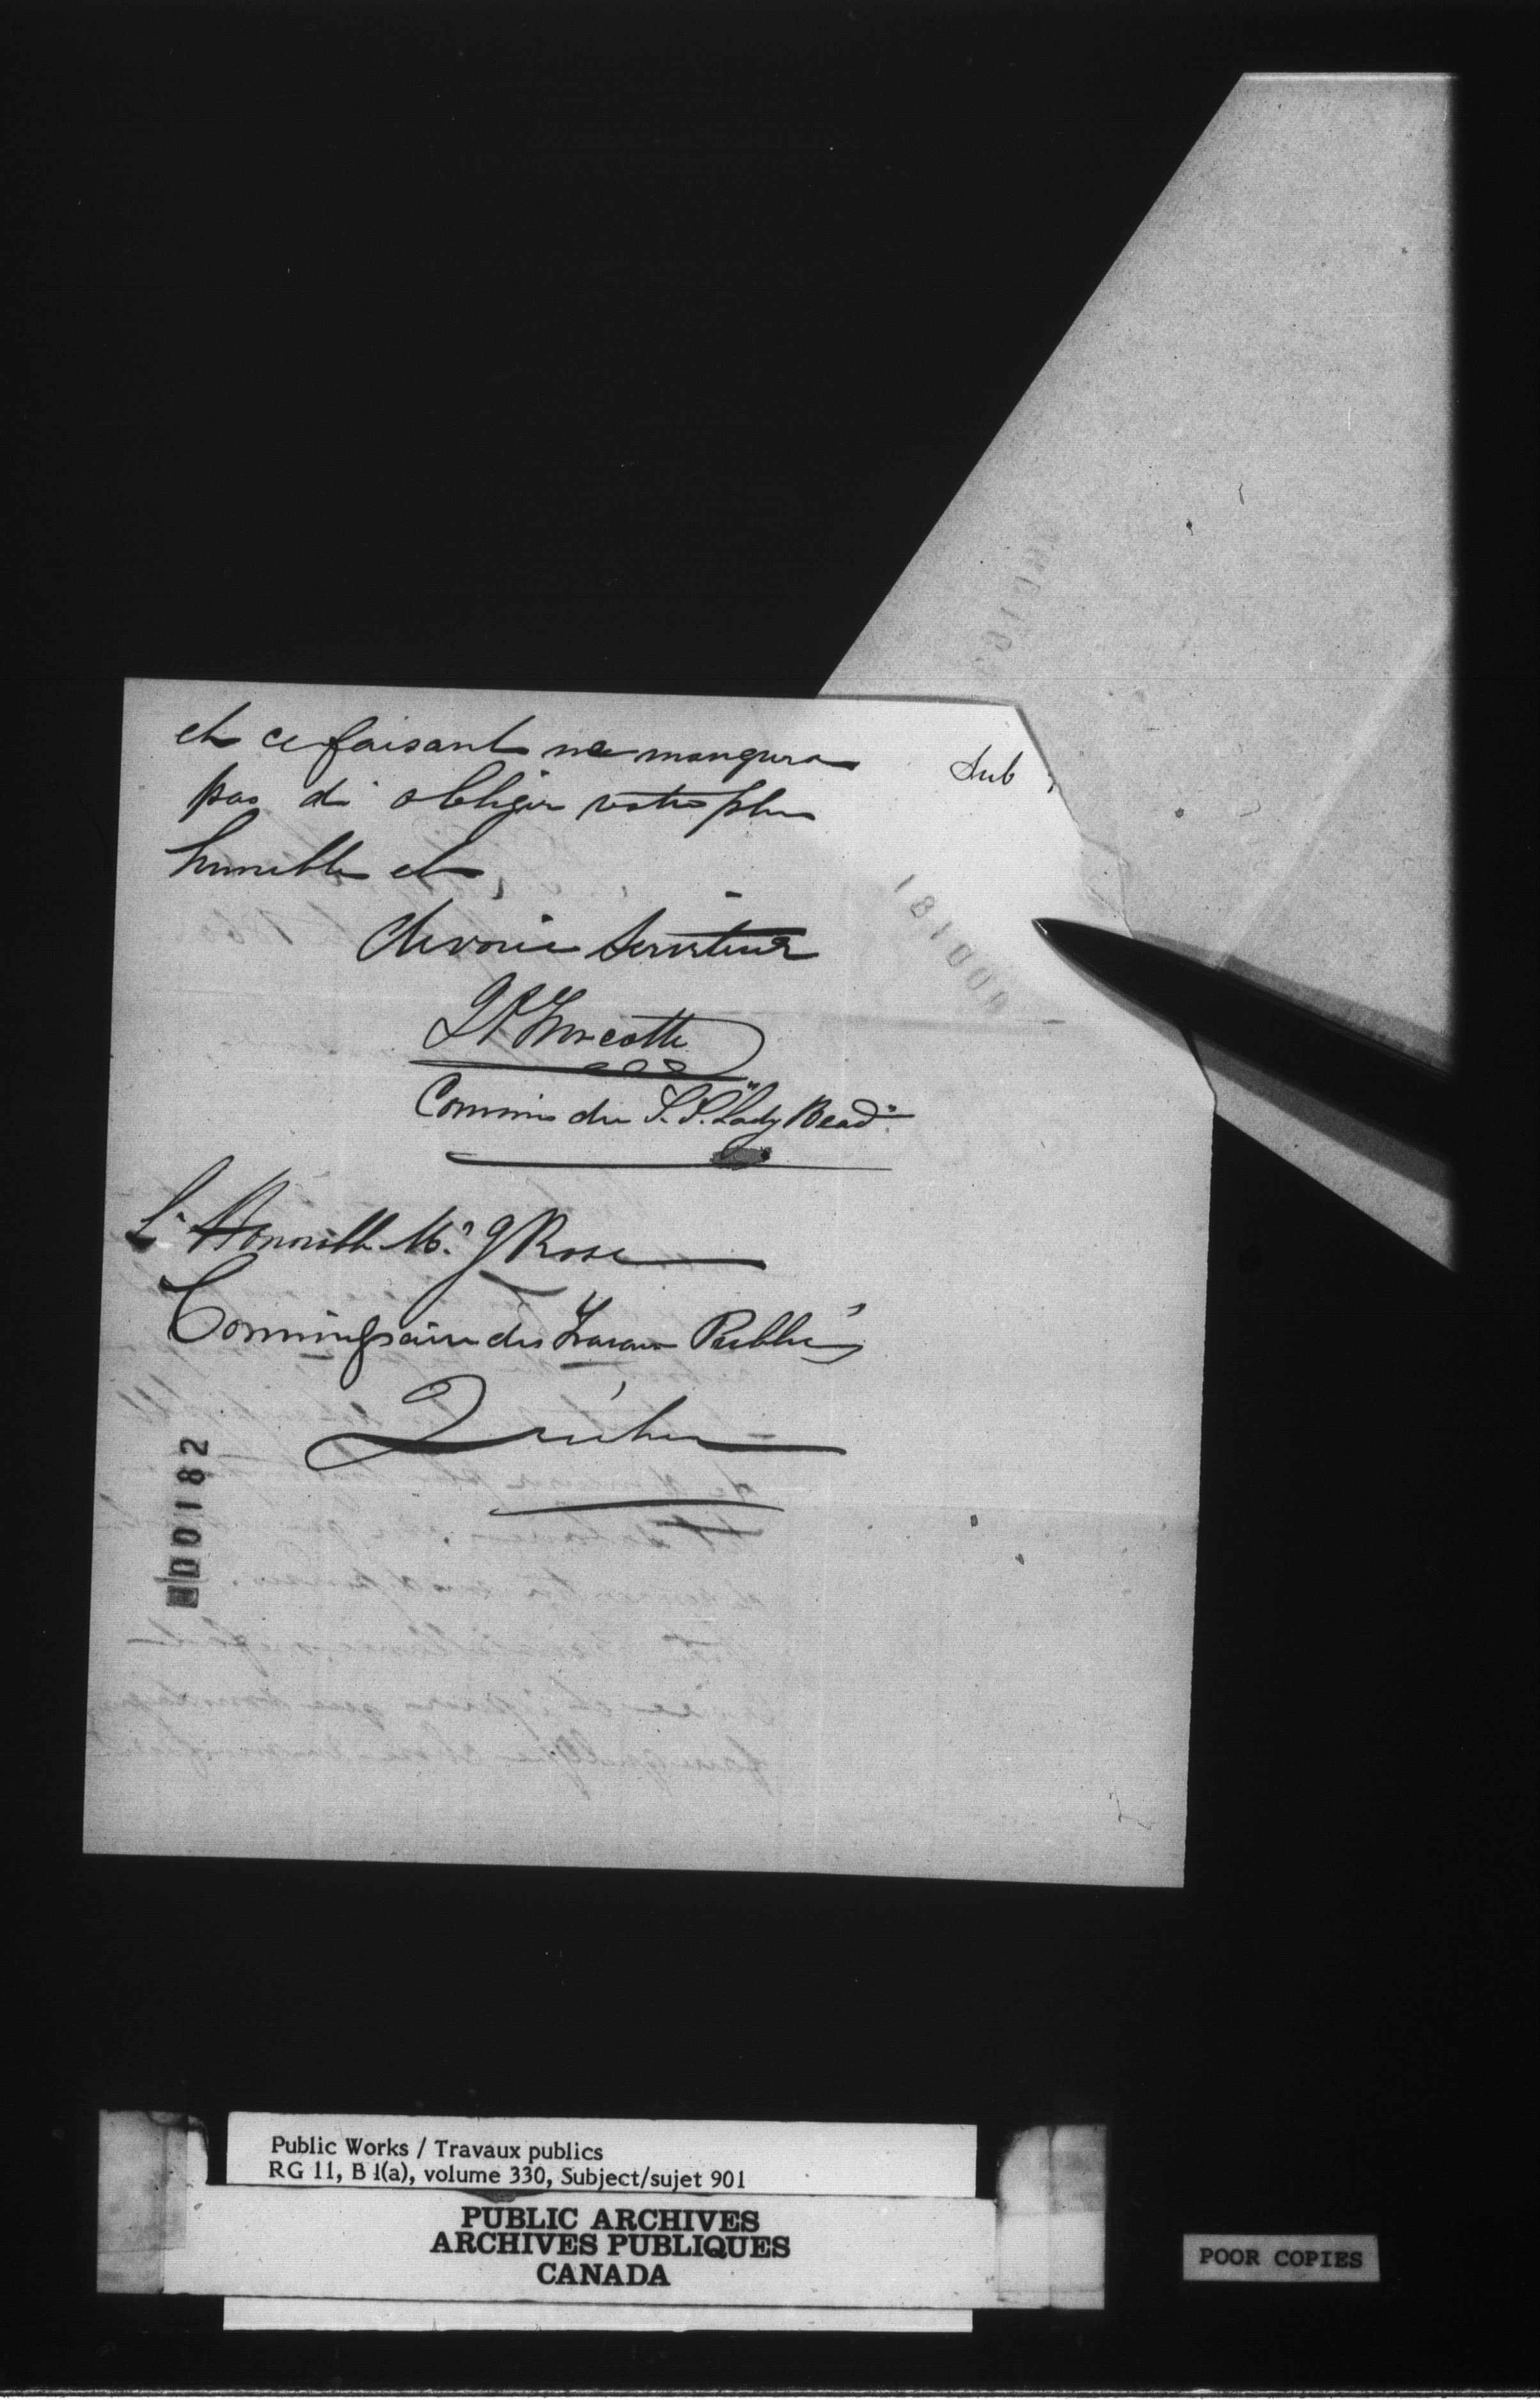 et ce faisant ne manqura
pas di obliger votre plus
humble et
devoué Serviteur
Turcotte
Commis du S. S. "Lady Head"
L'Honorable Mr. J Rose
Commissaire des Travaux Publics
Québec
Sub
000181
000182
Public Works / Travaux publics
RG 11, B 1(a), volume 330, Subject/sujet 901
PUBLIC ARCHIVES
ARCHIVES PUBLIQUES
CANADA
POOR COPIES